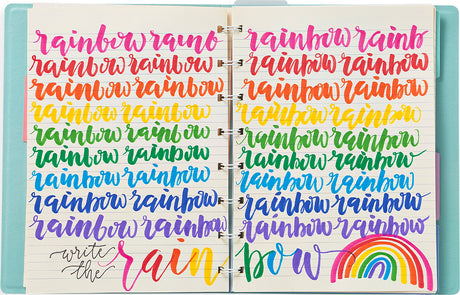 rainbow rainb
rainbow rainbow
rainbow rainbow
rainbow rainbow
rainbow rainbow
rainbow rainbow
rainbow rainbow
rainbow rainbow
rainbow rainbow
rainbow rainb
rainbow rainbow
rainbow rainbow
rainbow rainbow
rainbow rainbow
rainbow rainbow
rainbow rainbow
rainbow rainbow
rainbow rainbow
write
the rainbow